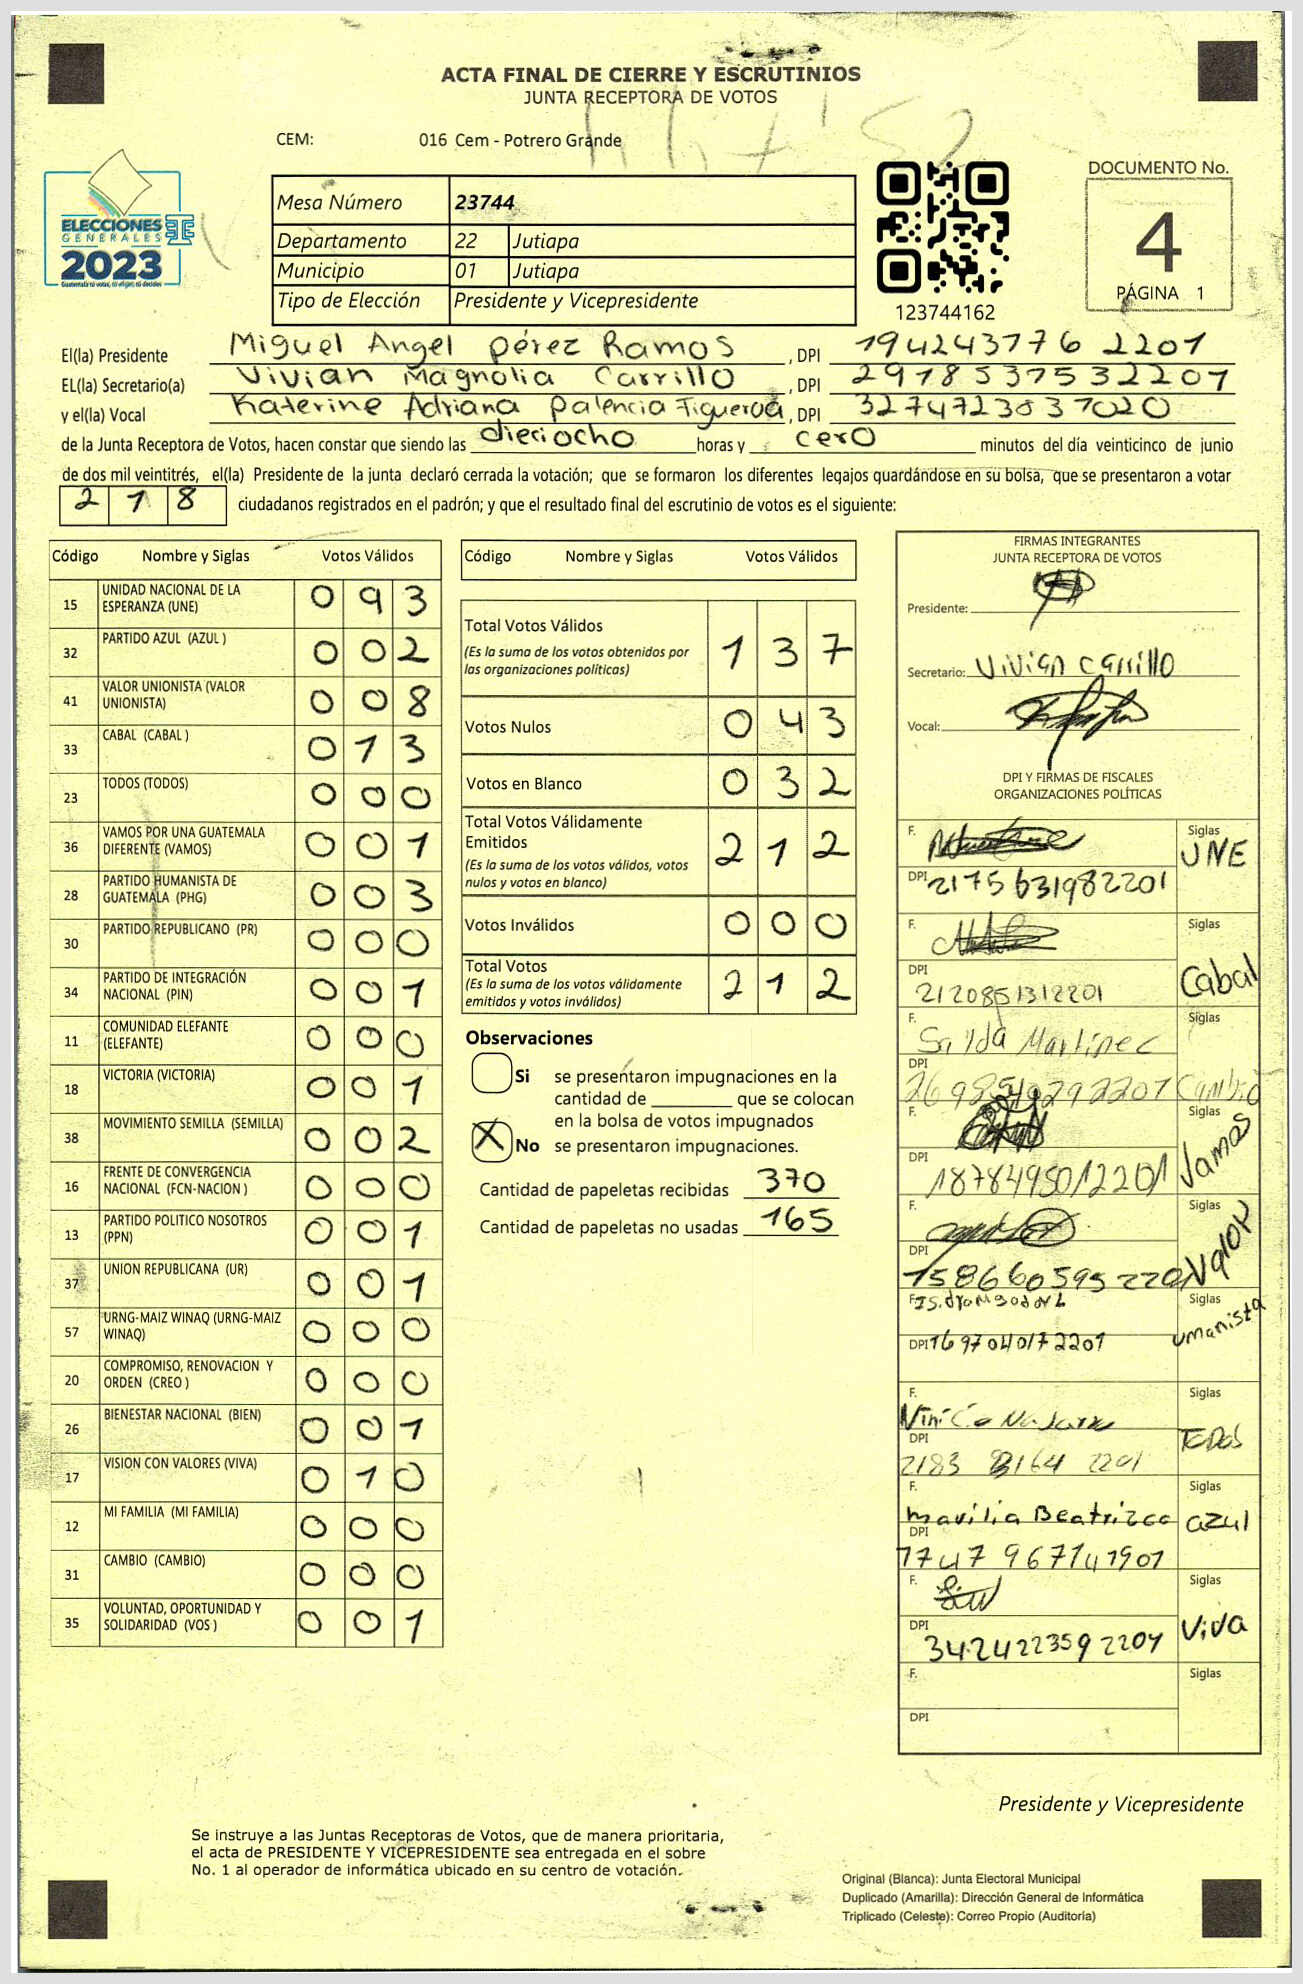 ACTA FINAL DE CIERRE Y ESCRUTINIOS
JUNTA RECEPTORA DE VOTOS
CEM: 016 Cem - Potrero Grande
ELECCIONES
GENERALES
2023
Guatemala tú votas, tú eliges, tú decides
Mesa Número 23744
Departamento 22 Jutiapa
Municipio 01 Jutiapa
Tipo de Elección Presidente y Vicepresidente
123744162
DOCUMENTO No.
4
PÁGINA 1
El(la) Presidente Miguel Angel pérez Ramos , DPI 194243776 2201
EL(la) Secretario(a) Vivian Magnolia Carrillo , DPI 2978537532207
y el(la) Vocal Katerine Adriana palencia Figueroa , DPI 3274723837020
de la Junta Receptora de Votos, hacen constar que siendo las dieciocho horas y cero minutos del día veinticinco de junio
de dos mil veintitrés, el(la) Presidente de la junta declaró cerrada la votación; que se formaron los diferentes legajos guardándose en su bolsa, que se presentaron a votar
218 ciudadanos registrados en el padrón; y que el resultado final del escrutinio de votos es el siguiente:
Código Nombre y Siglas Votos Válidos
15 UNIDAD NACIONAL DE LA ESPERANZA (UNE) 0 9 3
32 PARTIDO AZUL (AZUL ) 0 0 2
41 VALOR UNIONISTA (VALOR UNIONISTA) 0 0 8
33 CABAL (CABAL ) 0 1 3
23 TODOS (TODOS) 0 0 0
36 VAMOS POR UNA GUATEMALA DIFERENTE (VAMOS) 0 0 1
28 PARTIDO HUMANISTA DE GUATEMALA (PHG) 0 0 3
30 PARTIDO REPUBLICANO (PR) 0 0 0
34 PARTIDO DE INTEGRACIÓN NACIONAL (PIN) 0 0 1
11 COMUNIDAD ELEFANTE (ELEFANTE) 0 0 0
18 VICTORIA (VICTORIA) 0 0 1
38 MOVIMIENTO SEMILLA (SEMILLA) 0 0 2
16 FRENTE DE CONVERGENCIA NACIONAL (FCN-NACION ) 0 0 0
13 PARTIDO POLITICO NOSOTROS (PPN) 0 0 1
37 UNION REPUBLICANA (UR) 0 0 1
57 URNG-MAIZ WINAQ (URNG-MAIZ WINAQ) 0 0 0
20 COMPROMISO, RENOVACION Y ORDEN (CREO ) 0 0 0
26 BIENESTAR NACIONAL (BIEN) 0 0 1
17 VISION CON VALORES (VIVA) 0 1 0
12 MI FAMILIA (MI FAMILIA) 0 0 0
31 CAMBIO (CAMBIO) 0 0 0
35 VOLUNTAD, OPORTUNIDAD Y SOLIDARIDAD (VOS ) 0 0 1
Código Nombre y Siglas Votos Válidos
Total Votos Válidos 1 3 7
(Es la suma de los votos obtenidos por
las organizaciones políticas)
Votos Nulos 0 4 3
Votos en Blanco 0 3 2
Total Votos Válidamente
Emitidos 2 1 2
(Es la suma de los votos válidos, votos
nulos y votos en blanco)
Votos Inválidos 0 0 0
Total Votos 2 1 2
(Es la suma de los votos válidamente
emitidos y votos inválidos)
Observaciones
Si se presentaron impugnaciones en la
cantidad de ________ que se colocan
en la bolsa de votos impugnados
X No se presentaron impugnaciones.
Cantidad de papeletas recibidas 370
Cantidad de papeletas no usadas 165
FIRMAS INTEGRANTES
JUNTA RECEPTORA DE VOTOS
Presidente:
Secretario: Vivian Carrillo
Vocal:
DPI Y FIRMAS DE FISCALES
ORGANIZACIONES POLÍTICAS
F. Siglas UNE
DPI 2175631982201
F. Siglas Cabal
DPI 2120851312201
F. Sailda Martinec Siglas Cambio
DPI
F. Siglas Vamos
DPI 1878495012201
F. Siglas Valor
DPI 1586605952201
F. Siglas umanista
DPI 1697040172201
F. Siglas TODOS
DPI 2183 3164 2201
F. marilia Beatriz Siglas azul
DPI 1747 967141901
F. Siglas Viva
DPI 3424223592204
F. Siglas
DPI
Presidente y Vicepresidente
Se instruye a las Juntas Receptoras de Votos, que de manera prioritaria,
el acta de PRESIDENTE Y VICEPRESIDENTE sea entregada en el sobre
No. 1 al operador de informática ubicado en su centro de votación.
Original (Blanca): Junta Electoral Municipal
Duplicado (Amarilla): Dirección General de Informática
Triplicado (Celeste): Correo Propio (Auditoría)